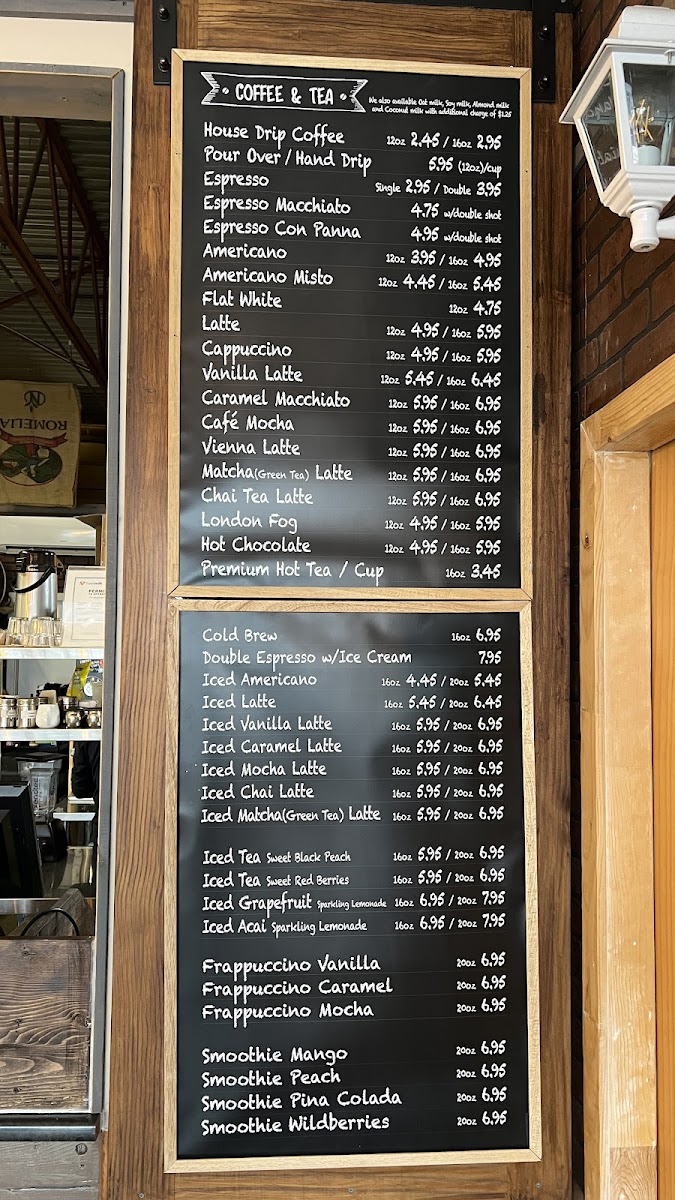 COFFEE & TEA
We also available Oat milk, Soy milk, Almond milk
and Coconut milk with additional charge of $1.25
House Drip Coffee 12oz 2.45 / 16oz 2.95
Pour Over / Hand Drip 5.95 (12oz)/cup
Espresso Single 2.95 / Double 3.95
Espresso Macchiato 4.75 w/double shot
Espresso Con Panna 4.95 w/double shot
Americano 12oz 3.95 / 16oz 4.95
Americano Misto 12oz 4.45 / 16oz 5.45
Flat White 12oz 4.75
Latte 12oz 4.95 / 16oz 5.95
Cappuccino 12oz 4.95 / 16oz 5.95
Vanilla Latte 12oz 5.45 / 16oz 6.45
Caramel Macchiato 12oz 5.95 / 16oz 6.95
Café Mocha 12oz 5.95 / 16oz 6.95
Vienna Latte 12oz 5.95 / 16oz 6.95
Matcha(Green Tea) Latte 12oz 5.95 / 16oz 6.95
Chai Tea Latte 12oz 5.95 / 16oz 6.95
London Fog 12oz 4.95 / 16oz 5.95
Hot Chocolate 12oz 4.95 / 16oz 5.95
Premium Hot Tea / Cup 16oz 3.45
Cold Brew 16oz 6.95
Double Espresso w/Ice Cream 7.95
Iced Americano 16oz 4.45 / 20oz 5.45
Iced Latte 16oz 5.45 / 20oz 6.45
Iced Vanilla Latte 16oz 5.95 / 20oz 6.95
Iced Caramel Latte 16oz 5.95 / 20oz 6.95
Iced Mocha Latte 16oz 5.95 / 20oz 6.95
Iced Chai Latte 16oz 5.95 / 20oz 6.95
Iced Matcha(Green Tea) Latte 16oz 5.95 / 20oz 6.95
Iced Tea Sweet Black Peach 16oz 5.95 / 20oz 6.95
Iced Tea Sweet Red Berries 16oz 5.95 / 20oz 6.95
Iced Grapefruit Sparkling Lemonade 16oz 6.95 / 20oz 7.95
Iced Acai Sparkling Lemonade 16oz 6.95 / 20oz 7.95
Frappuccino Vanilla 20oz 6.95
Frappuccino Caramel 20oz 6.95
Frappuccino Mocha 20oz 6.95
Smoothie Mango 20oz 6.95
Smoothie Peach 20oz 6.95
Smoothie Pina Colada 20oz 6.95
Smoothie Wildberries 20oz 6.95
ROMELIA